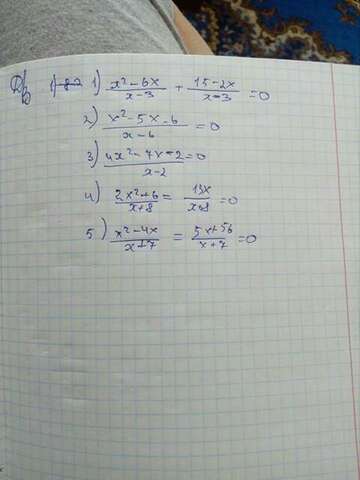 Д/з 1) x²-6x/x-3 + 15-2x/x-3 = 0
2) x²-5x-6/x-6 = 0
3) 4x²-7x-2/x-2 = 0
4) 2x²+6/x+8 = 13x/x+8 = 0
5) x²-4x/x+7 = 5x+56/x+7 = 0